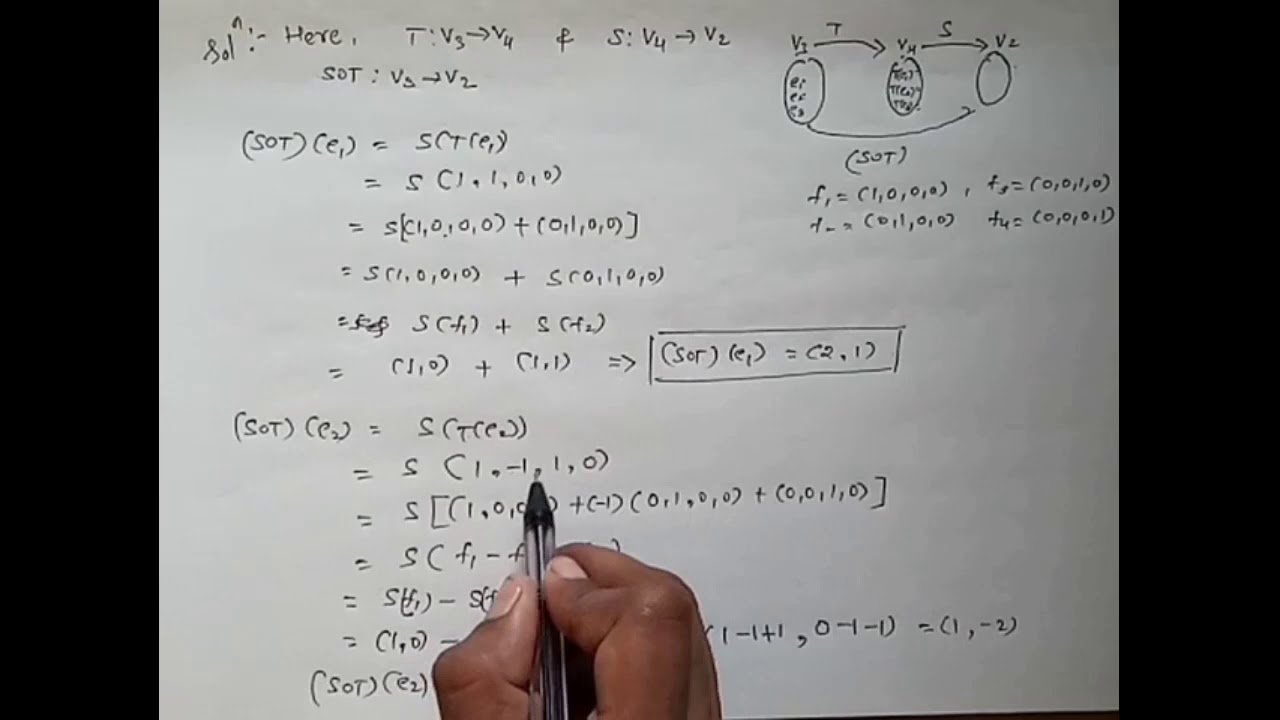 Solⁿ :- Here, T : V₃→V₄ & S : V₄→V₂
SOT : V₃→V₂
V₃ T V₄ S V₂
e₁ T(e₁)
e₂ T(e₂)
e₃ T(e₃)
(SOT)
f₁ = (1,0,0,0) , f₃ = (0,0,1,0)
f₂ = (0,1,0,0) f₄ = (0,0,0,1)
(SOT)(e₁) = S(T(e₁)
= S (1,1,0,0)
= S[(1,0,0,0) + (0,1,0,0)]
= S(1,0,0,0) + S(0,1,0,0)
= S(f₁) + S(f₂)
= (1,0) + (1,1) => (SOT)(e₁) = (2,1)
(SOT)(e₂) = S(T(e₂))
= S (1,-1,1,0)
= S[(1,0,0 ) +(-1)(0,1,0,0) + (0,0,1,0)]
= S( f₁ - f )
= S(f₁) - S(f
= (1,0) - (1-1+1, 0-1-1) = (1,-2)
(SOT)(e₂)